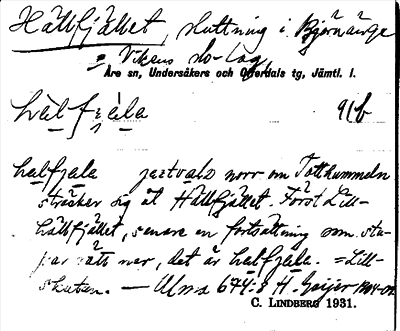 Hällfjället, sluttning i Björnänge
= Vikens sko-lag,
Åre sn, Undersåkers och Offerdals tg, Jämtl. l.
hal fjala 91b
halfjala norr om Totthummeln
sträcker sig åt Hällfjället. Först Lill-
hällfjället, senare en fortsättning som stu-
par rätt ner, det är halfjala. = Lill-
skutan. — Ulma 674:8 H. Geijer 1904-09
C. LINDBERG 1931.